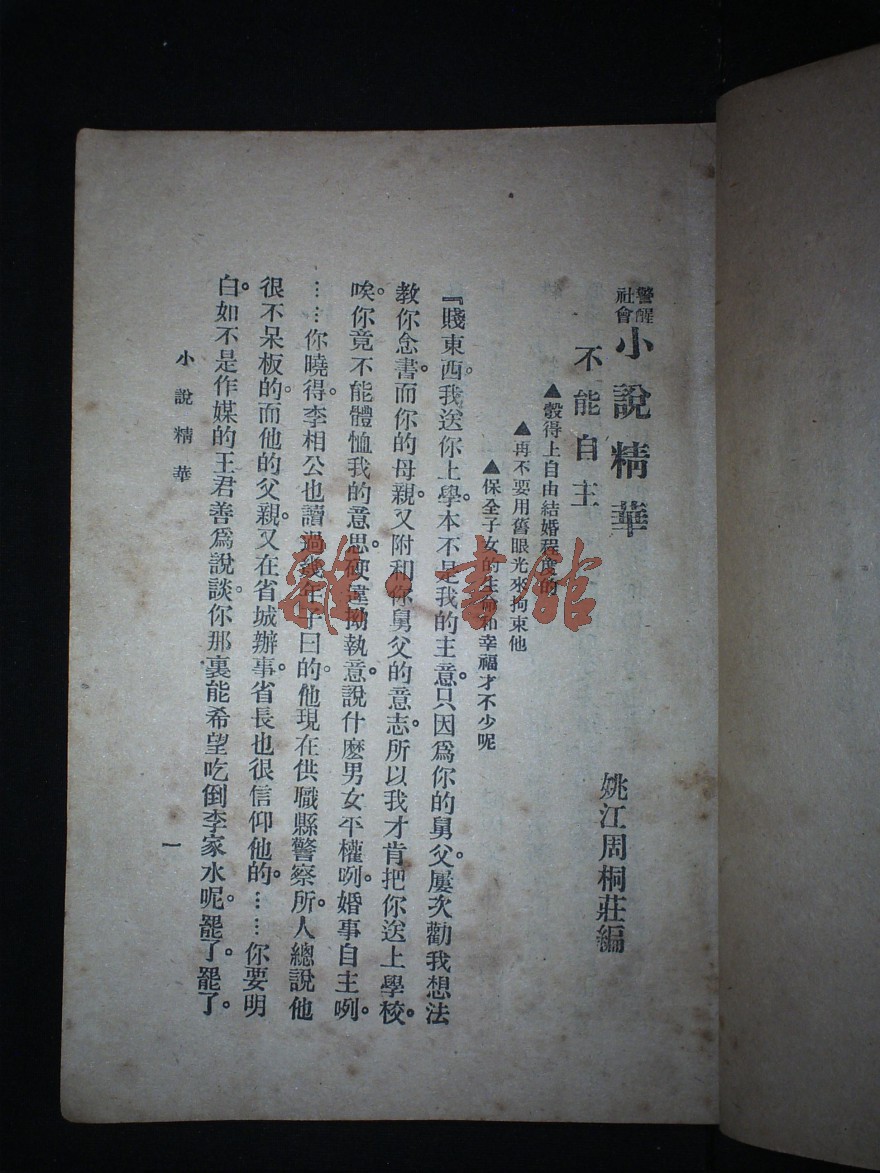 警醒
社會
小說精華
姚江周桐莊編
不能自主
▲彀得上自由結婚程度的
▲再不要用舊眼光來拘束他
▲保全子女的生命和幸福才不少呢
『賤東西。我送你上學。本不是我的主意。只因為你的舅父。屢次勸我想法
教你念書。而你的母親。又附和你舅父的意志。所以我才肯把你送上學校。
唉。你竟不能體恤我的意思。便違拗執意。說什麼男女平權咧。婚事自主咧。
……你曉得。李相公也讀過幾年子曰的。他現在供職縣警察所。人總說他
很不呆板的。而他的父親。又在省城辦事。省長也很信仰他的。……你要明
白。如不是作媒的王君善為說談。你那裏能希望吃倒李家水呢。罷了。罷了。
小說精華
一
雜·書館